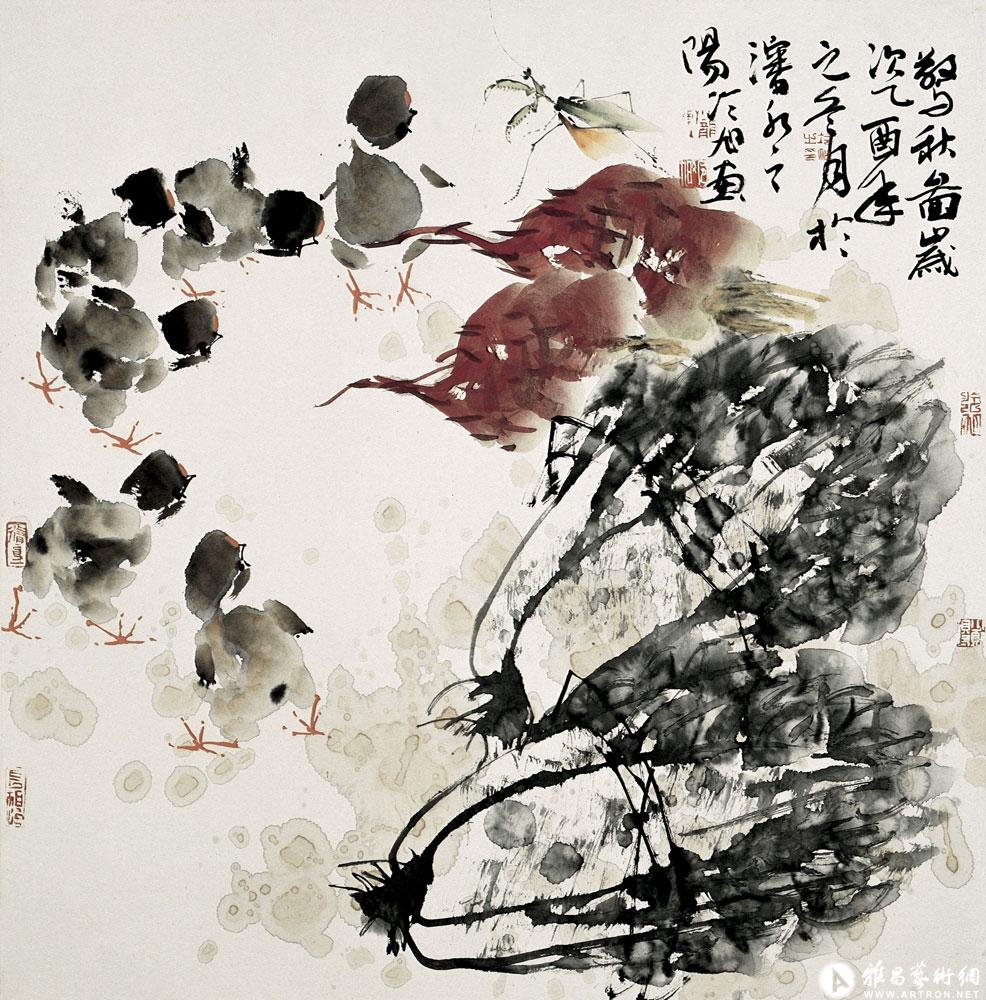 驚秋圖歲
次乙酉年
之冬月於
瀋水之
陽冷旭画
雅昌藝術網
WWW.ARTRON.NET